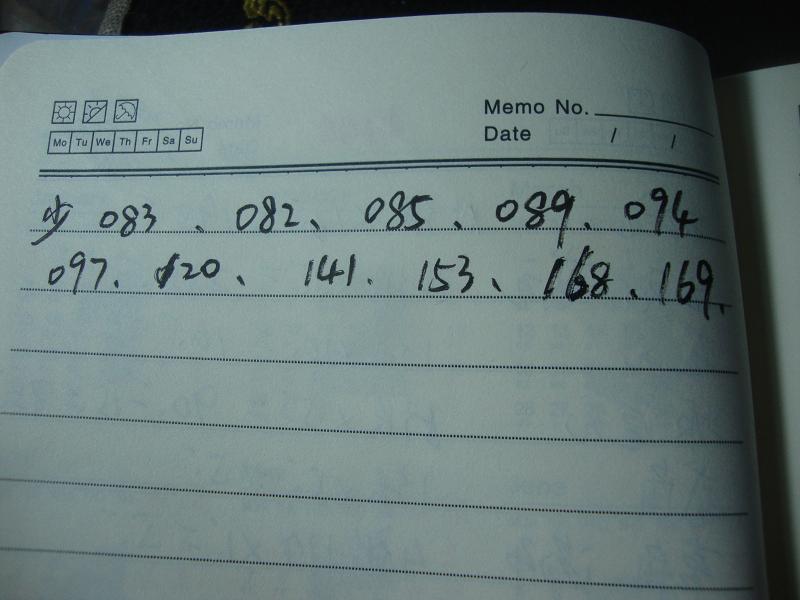 Memo No.
Mo Tu We Th Fr Sa Su
Date / /
少 083、082、085、089、094
097、120、141、153、168、169、